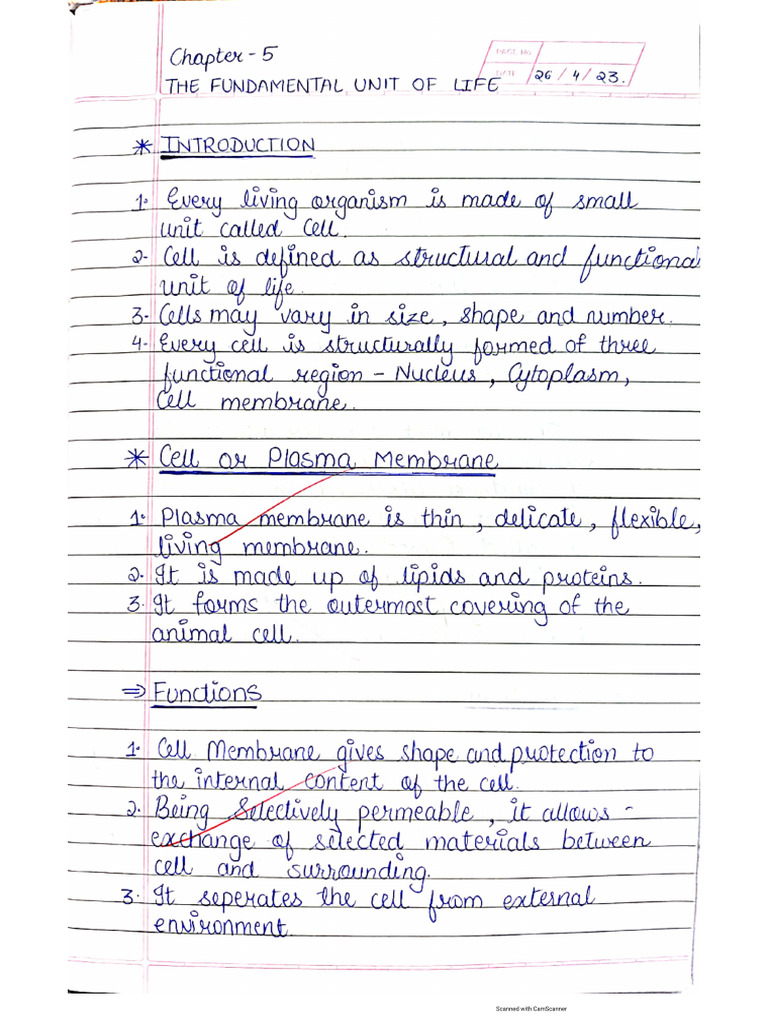 Chapter - 5
PAGE NO.
DATE 26 / 4 / 23.
THE FUNDAMENTAL UNIT OF LIFE
* INTRODUCTION
1. Every living organism is made of small
unit called Cell.
2. Cell is defined as structural and functional
unit of life.
3. Cells may vary in size, shape and number.
4. Every cell is structurally formed of three
functional region - Nucleus, Cytoplasm,
Cell membrane.
* Cell or Plasma Membrane
1. Plasma membrane is thin, delicate, flexible,
living membrane.
2. It is made up of lipids and proteins.
3. It forms the outermost covering of the
animal cell.
⇒ Functions
1. Cell Membrane gives shape and protection to
the internal content of the cell.
2. Being Selectively permeable, it allows -
exchange of selected materials between
cell and surrounding.
3. It seperates the cell from external
environment.
Scanned with CamScanner